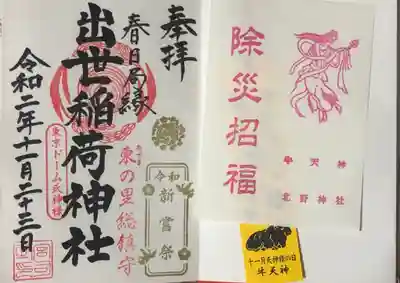 除災招福
牛天神
北野神社
十一月天神様の日
牛天神
奉拝
春日局縁
出世稲荷神社
東の里総鎮守
令和
新嘗祭
東京ドーム氏神様
令和二年十一月二十三日